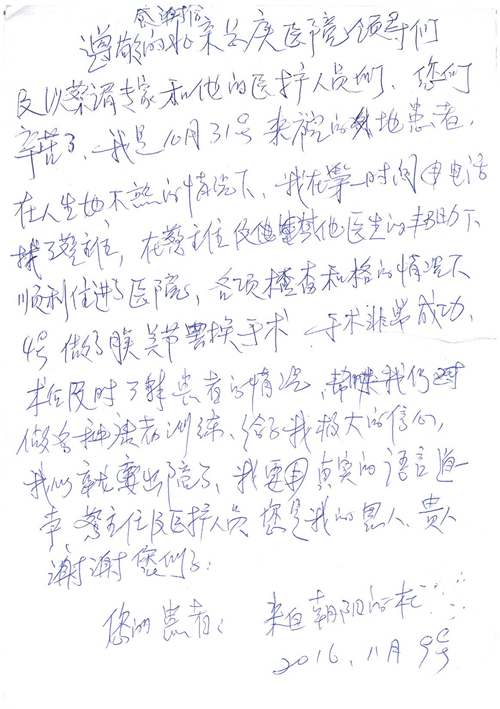 感谢信
尊敬的北京长庚医院领导们
及以蔡谞专家和他的医护人员们、您们
辛苦了、我是10月31号来院的外地患者,
在人生地不熟的情况下、我在第一时间用电话
找了蔡主任,在蔡主任及他其他医生的帮助下
顺利住进了医院,各项检查和格的情况下
4号做了膝关节置换手术 手术非常成功、
术后及时了解患者的情况、帮助我们对
做各种康复训练、给了我极大的信心,
我以就要出院了、我要用真实的语言道一
声,蔡主任及医护人员您是我的恩人、贵人
谢谢您们了:
您的患者: 来自朝阳的杜
2016、11月9号